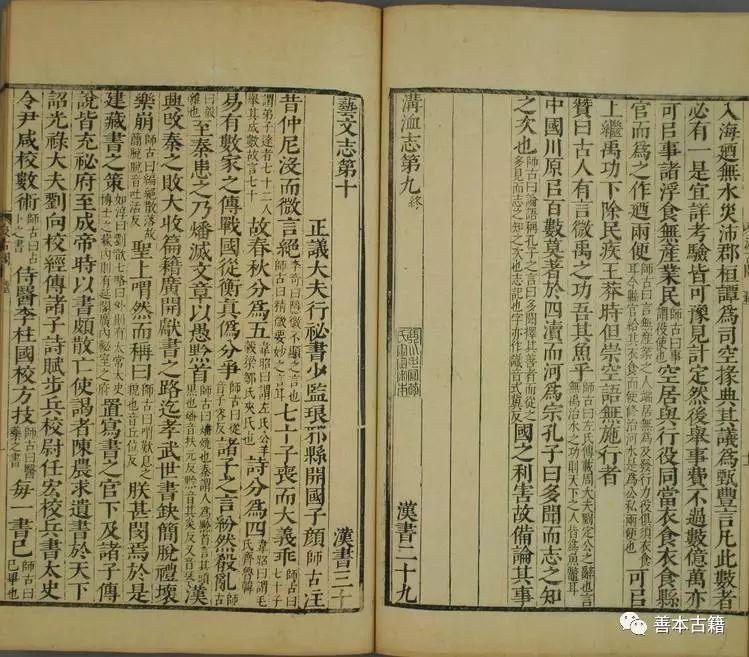 入海廼無水災沛郡桓譚為司空掾典其議為甄豐言凡此數者
必有一是宜詳考驗皆可豫見計定然後舉事費不過數億萬亦
可㠯事諸浮食無產業民師古曰事謂役使也空居與行役同當衣食衣食縣
官而為之作廼兩便師古曰言無產業之人端居無為及發行力役俱須衣食耳今縣官給其衣食而使修治河水是為公私兩便也可㠯
上繼禹功下除民疾王莽時但崇空語無施行者
贊曰古人有言微禹之功吾其魚乎師古曰左氏傳載周大夫劉定公之辭也言無禹治水之功則天下之人皆為魚鼈耳
中國川原㠯百數莫著於四瀆而河為宗孔子曰多聞而志之知
之次也師古曰論語稱孔子之言曰多聞擇其善者而從之多見而志之知之次也志記也字亦作識音式冀反國之利害故備論其事
溝洫志第九終
漢書二十九
藝文志第十
漢書三十
正議大夫行祕書少監琅邪縣開國子顏師古注
昔仲尼沒而微言絕李奇曰隱微不顯之言也師古曰精微要妙之言耳七十子喪而大義乖師古曰七十子
謂弟子達者七十二人舉其成數故言七十故春秋分為五韋昭曰謂左氏公羊穀梁鄒氏夾氏也詩分為四韋昭曰謂毛氏齊魯韓
易有數家之傳戰國從衡真偽分爭師古曰從音子容反諸子之言紛然殽亂師古
曰殽雜也至秦患之乃燔滅文章以愚黔首師古曰燔燒也秦謂人為黔首言其頭黑也燔音扶元反黔音其炎反又音琴漢
興改秦之敗大收篇籍廣開獻書之路迄孝武世書缺簡脫禮壞
樂崩師古曰編絕散落故簡脫脫音吐活反聖上喟然而稱曰師古曰喟歎息之貌也音丘位反朕甚閔焉於是
建藏書之策如淳曰劉歆七略曰外則有太常太史博士之藏內則有延閣廣內祕室之府置寫書之官下及諸子傳
說皆充祕府至成帝時以書頗散亡使謁者陳農求遺書於天下
詔光祿大夫劉向校經傳諸子詩賦步兵校尉任宏校兵書太史
令尹咸校數術師古曰占卜之書侍醫李柱國校方技師古曰醫藥之書每一書已師古曰已畢也
善本古籍